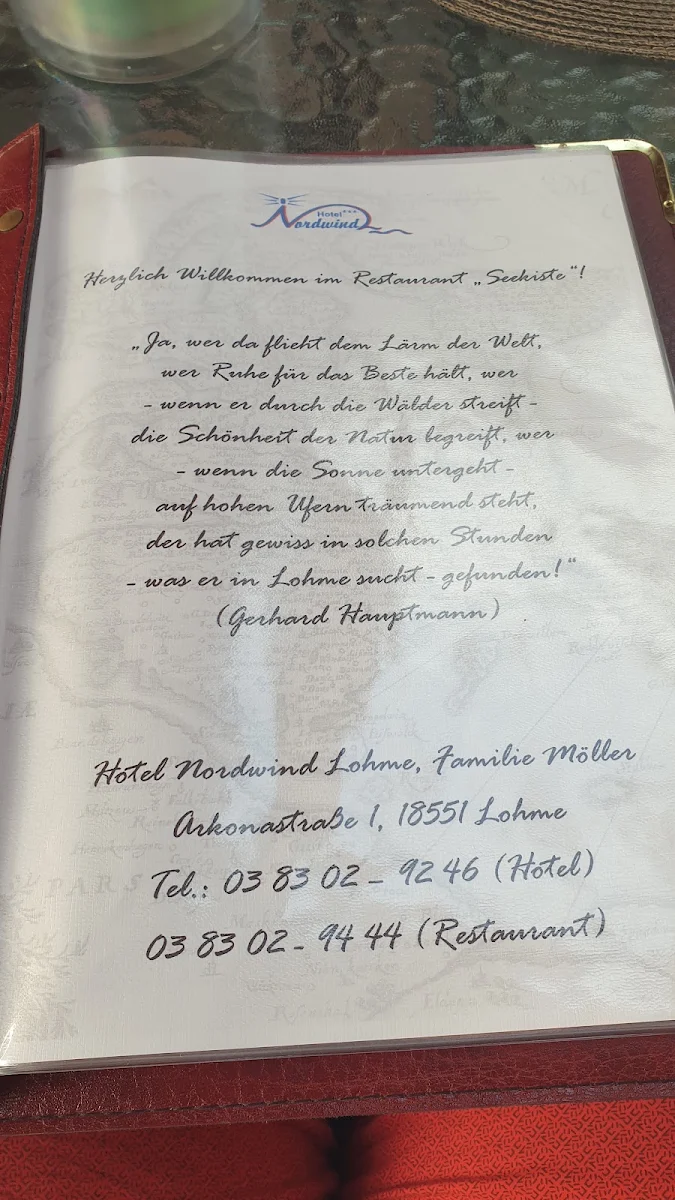 Hotel***
Nordwind
Herzlich Willkommen im Restaurant „Seekiste"!
„Ja, wer da flieht dem Lärm der Welt,
wer Ruhe für das Beste hält, wer
- wenn er durch die Wälder streift -
die Schönheit der Natur begreift, wer
- wenn die Sonne untergeht -
auf hohen Ufern träumend steht,
der hat gewiss in solchen Stunden
- was er in Lohme sucht - gefunden!"
(Gerhard Hauptmann)
Hotel Nordwind Lohme, Familie Möller
Arkonastraße 1, 18551 Lohme
Tel.: 03 83 02 - 92 46 (Hotel)
03 83 02 - 94 44 (Restaurant)
PARS